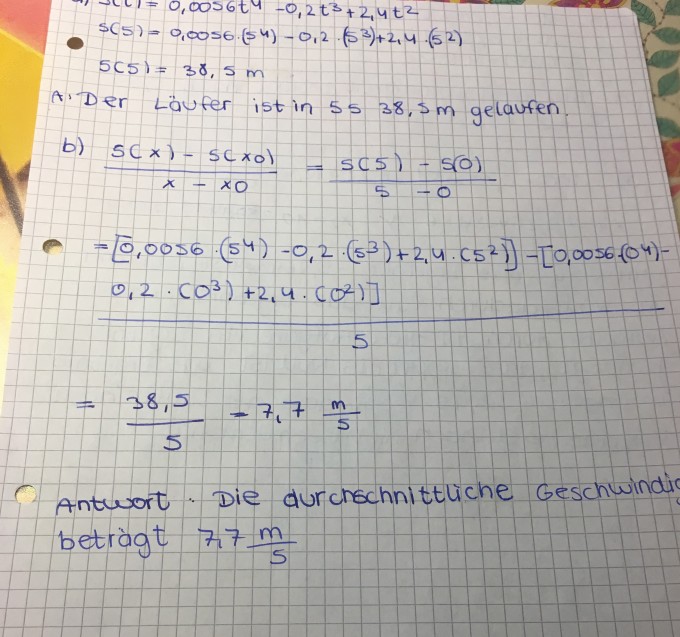 a) s(t) = 0,0056t⁴ -0,2t³+2,4t²
s(5) = 0,0056·(5⁴) -0,2·(5³)+2,4·(5²)
s(5) = 38,5 m
A: Der Läufer ist in 5s 38,5m gelaufen.
b) s(x) - s(x0) / x - x0 = s(5) - s(0) / 5 - 0
=[0,0056·(5⁴) -0,2·(5³)+2,4·(5²)]-[0,0056·(0⁴)-
0,2·(0³)+2,4·(0²)]
5
= 38,5 / 5 = 7,7 m/s
Antwort. Die durchschnittliche Geschwindig
beträgt 7,7 m/s